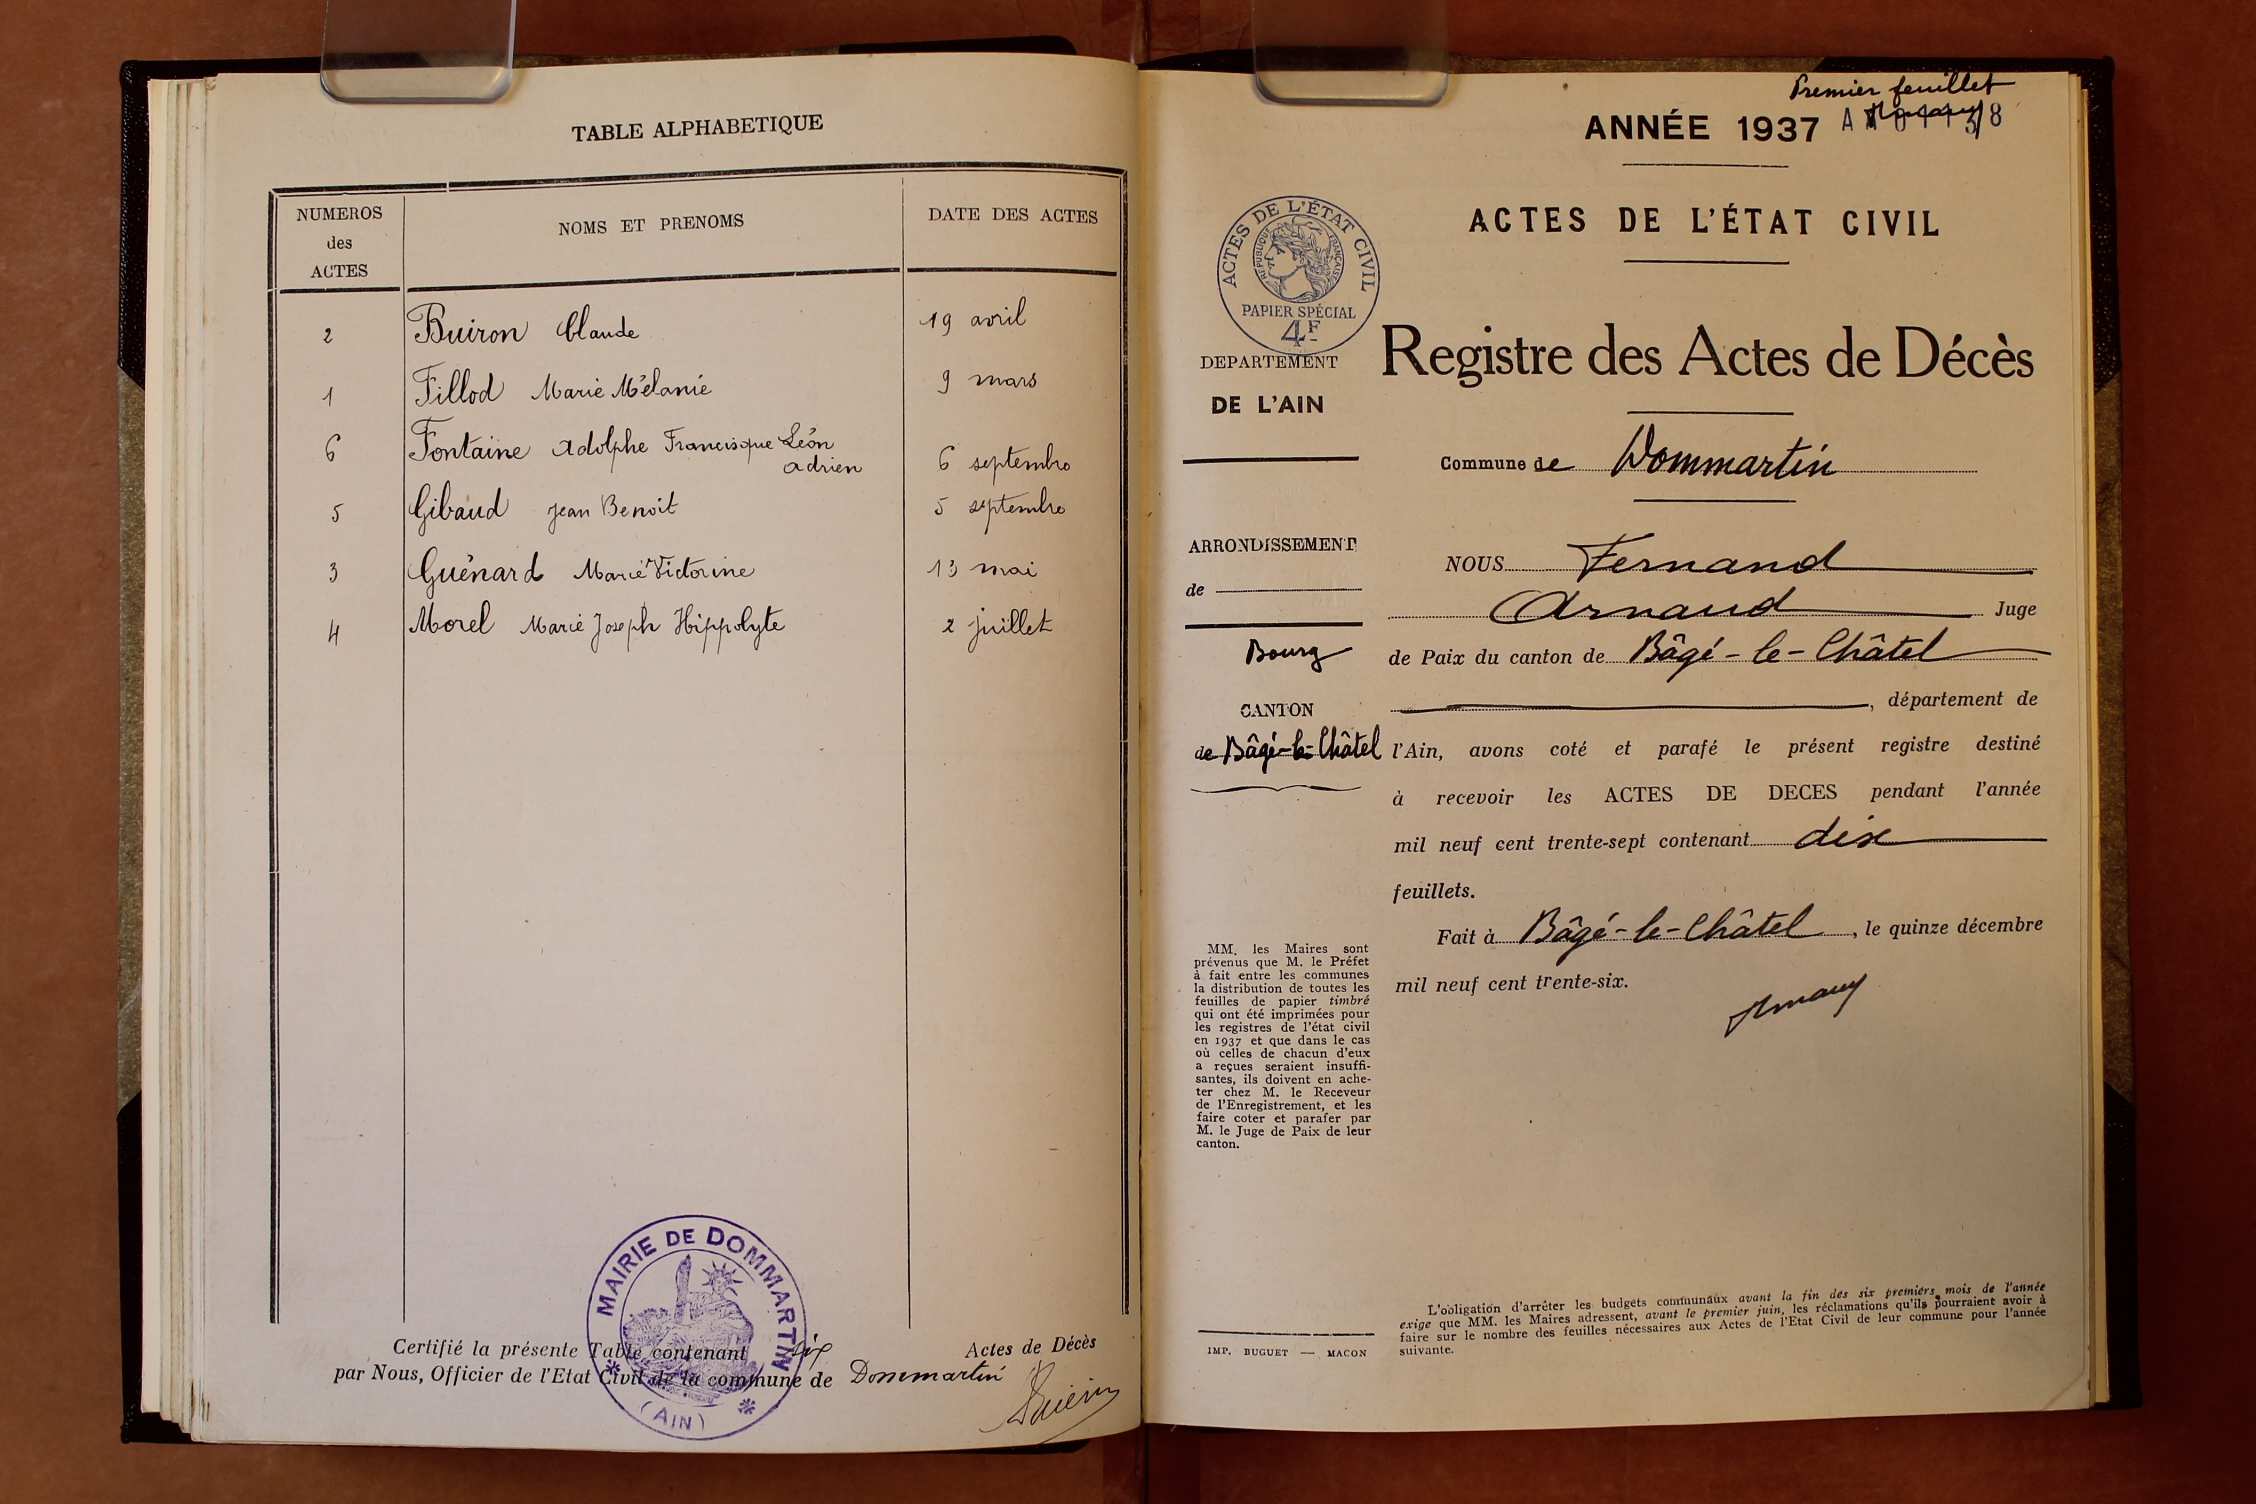 TABLE ALPHABETIQUE
NUMEROS
des
ACTES
NOMS ET PRENOMS
DATE DES ACTES
2 Buiron Claude 19 avril
1 Fillod Marie Mélanie 9 mars
6 Fontaine Adolphe Francisque Léon
Adrien 6 septembre
5 Gibaud Jean Benoit 5 septembre
3 Guénard Marie Victorine 13 mai
4 Morel Marie Joseph Hippolyte 2 juillet
MAIRIE DE DOMMARTIN
(AIN)
Certifié la présente Table contenant six Actes de Décès
par Nous, Officier de l'Etat Civil de la commune de Dommartin
Premier feuillet
ANNÉE 1937
ACTES DE L'ÉTAT CIVIL
ACTES DE L'ÉTAT CIVIL
RÉPUBLIQUE FRANÇAISE
PAPIER SPÉCIAL
4F
DEPARTEMENT
DE L'AIN
ARRONDISSEMENT
de
Bourg
CANTON
de Bâgé-le-Châtel
MM. les Maires sont
prévenus que M. le Préfet
à fait entre les communes
la distribution de toutes les
feuilles de papier timbré
qui ont été imprimées pour
les registres de l'état civil
en 1937 et que dans le cas
où celles de chacun d'eux
a reçues seraient insuffi-
santes, ils doivent en ache-
ter chez M. le Receveur
de l'Enregistrement, et les
faire coter et parafer par
M. le Juge de Paix de leur
canton.
IMP. BUGUET — MACON
Registre des Actes de Décès
Commune de Dommartin
NOUS Fernand
Arnaud Juge
de Paix du canton de Bâgé-le-Châtel
, département de
l'Ain, avons coté et parafé le présent registre destiné
à recevoir les ACTES DE DECES pendant l'année
mil neuf cent trente-sept contenant dix
feuillets.
Fait à Bâgé-le-Châtel, le quinze décembre
mil neuf cent trente-six.
L'obligation d'arrêter les budgets communaux avant la fin des six premiers mois de l'année
exige que MM. les Maires adressent, avant le premier juin, les réclamations qu'ils pourraient avoir à
faire sur le nombre des feuilles nécessaires aux Actes de l'Etat Civil de leur commune pour l'année
suivante.